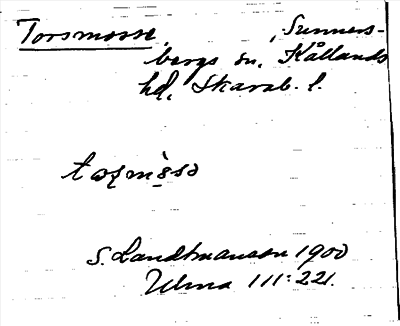 Torsmosse, Sunners-
bergs sn, Kållands
hd, Skarab. l.
S. Landtmanson 1900
Ulma 111:221.